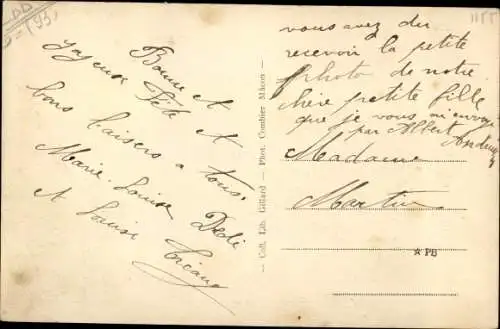 Bonne et
joyeuse Fête et
bons baisers a tous.
Marie-Louise Dédé
et Louise
vous avez du
recevoir la petite
photo de notre
chère petite fille
que je vous
par Albert
Madame
Martin
Coll. Lib. Gillard — Phot. Combier Mâcon
☆ PB